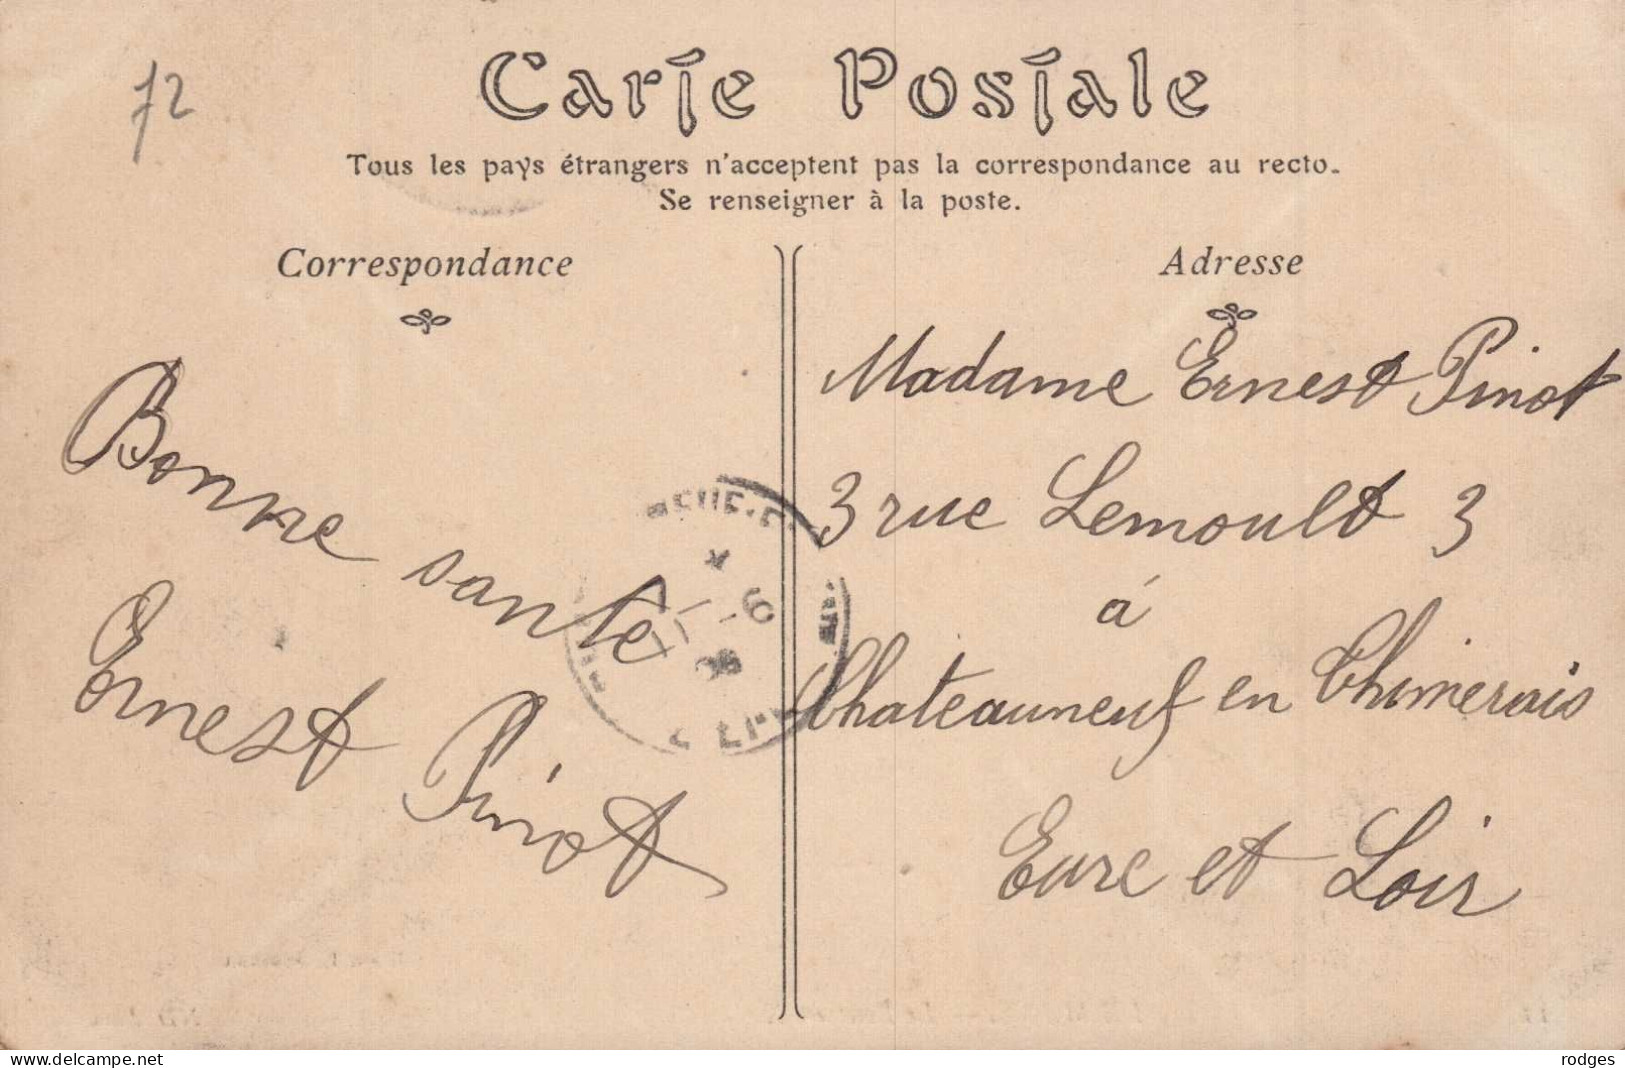 72
Carte Postale
Tous les pays étrangers n'acceptent pas la correspondance au recto.
Se renseigner à la poste.
Correspondance
Bonne santé
Ernest Pinot
Adresse
Madame Ernest Pinot
3 rue Lemoult 3
á
Chateauneuf en Thimerais
Eure et Loir
www.delcampe.net
rodges